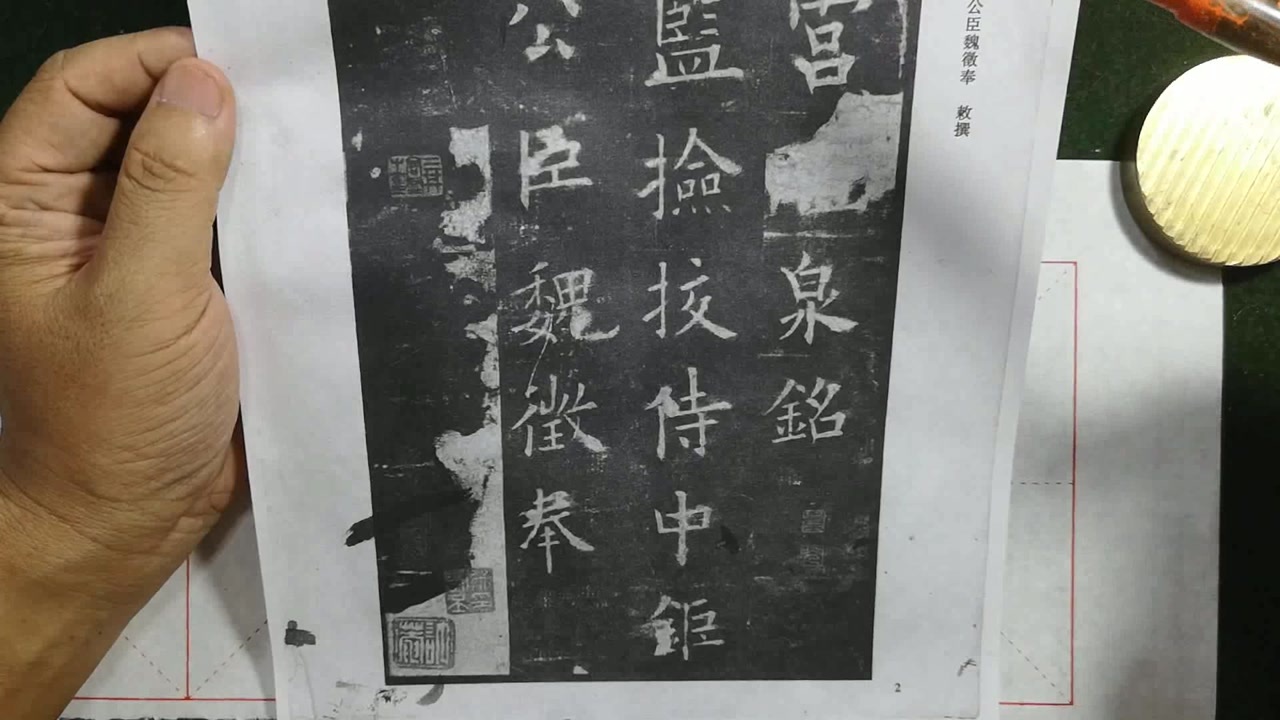 公臣魏徵奉 敕撰
宮泉銘
監撿挍侍中鉅
公臣魏徵奉
2